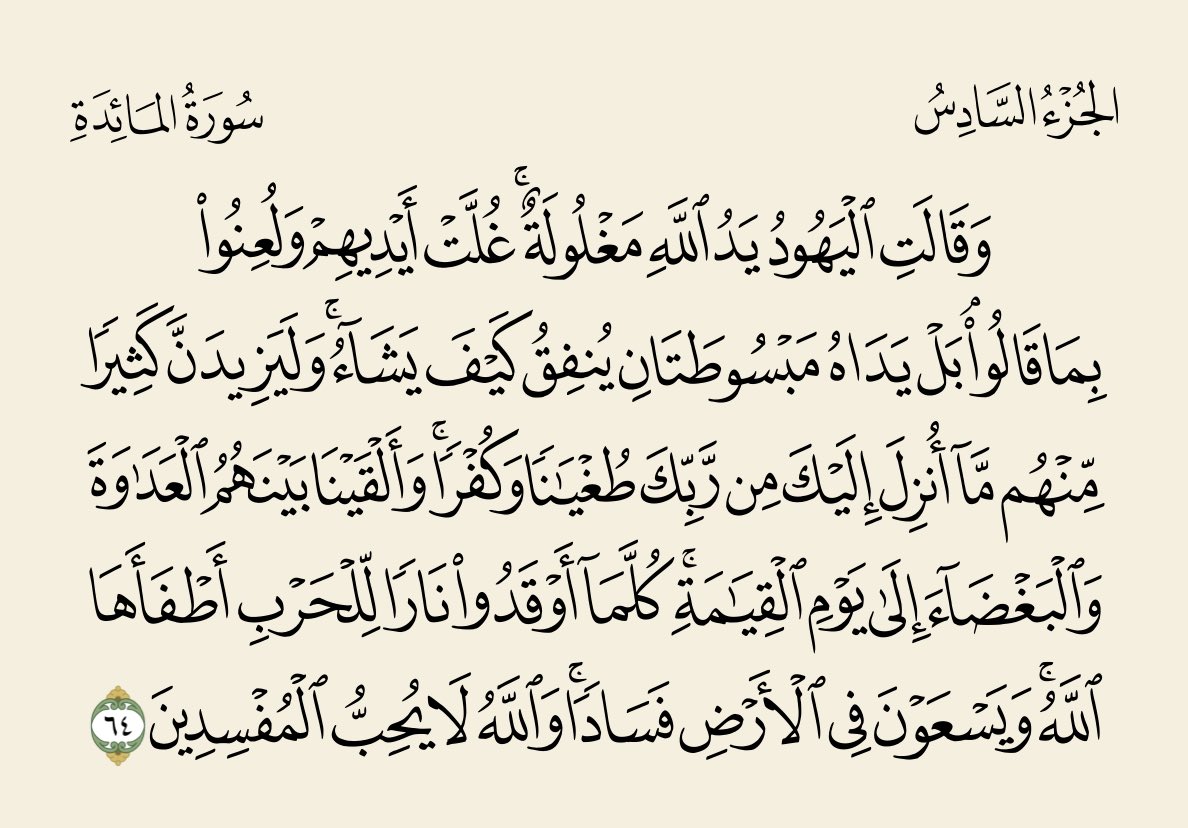 الجُزْءُ السَّادِسُ
سُورَةُ المَائِدَةِ
وَقَالَتِ ٱلْيَهُودُ يَدُ ٱللَّهِ مَغْلُولَةٌۚ غُلَّتْ أَيْدِيهِمْ وَلُعِنُوا۟
بِمَا قَالُوا۟ۘ بَلْ يَدَاهُ مَبْسُوطَتَانِ يُنفِقُ كَيْفَ يَشَآءُۚ وَلَيَزِيدَنَّ كَثِيرًا
مِّنْهُم مَّآ أُنزِلَ إِلَيْكَ مِن رَّبِّكَ طُغْيَـٰنًا وَكُفْرًاۚ وَأَلْقَيْنَا بَيْنَهُمُ ٱلْعَدَٰوَةَ
وَٱلْبَغْضَآءَ إِلَىٰ يَوْمِ ٱلْقِيَـٰمَةِۚ كُلَّمَآ أَوْقَدُوا۟ نَارًا لِّلْحَرْبِ أَطْفَأَهَا
ٱللَّهُۚ وَيَسْعَوْنَ فِى ٱلْأَرْضِ فَسَادًاۚ وَٱللَّهُ لَا يُحِبُّ ٱلْمُفْسِدِينَ ٦٤